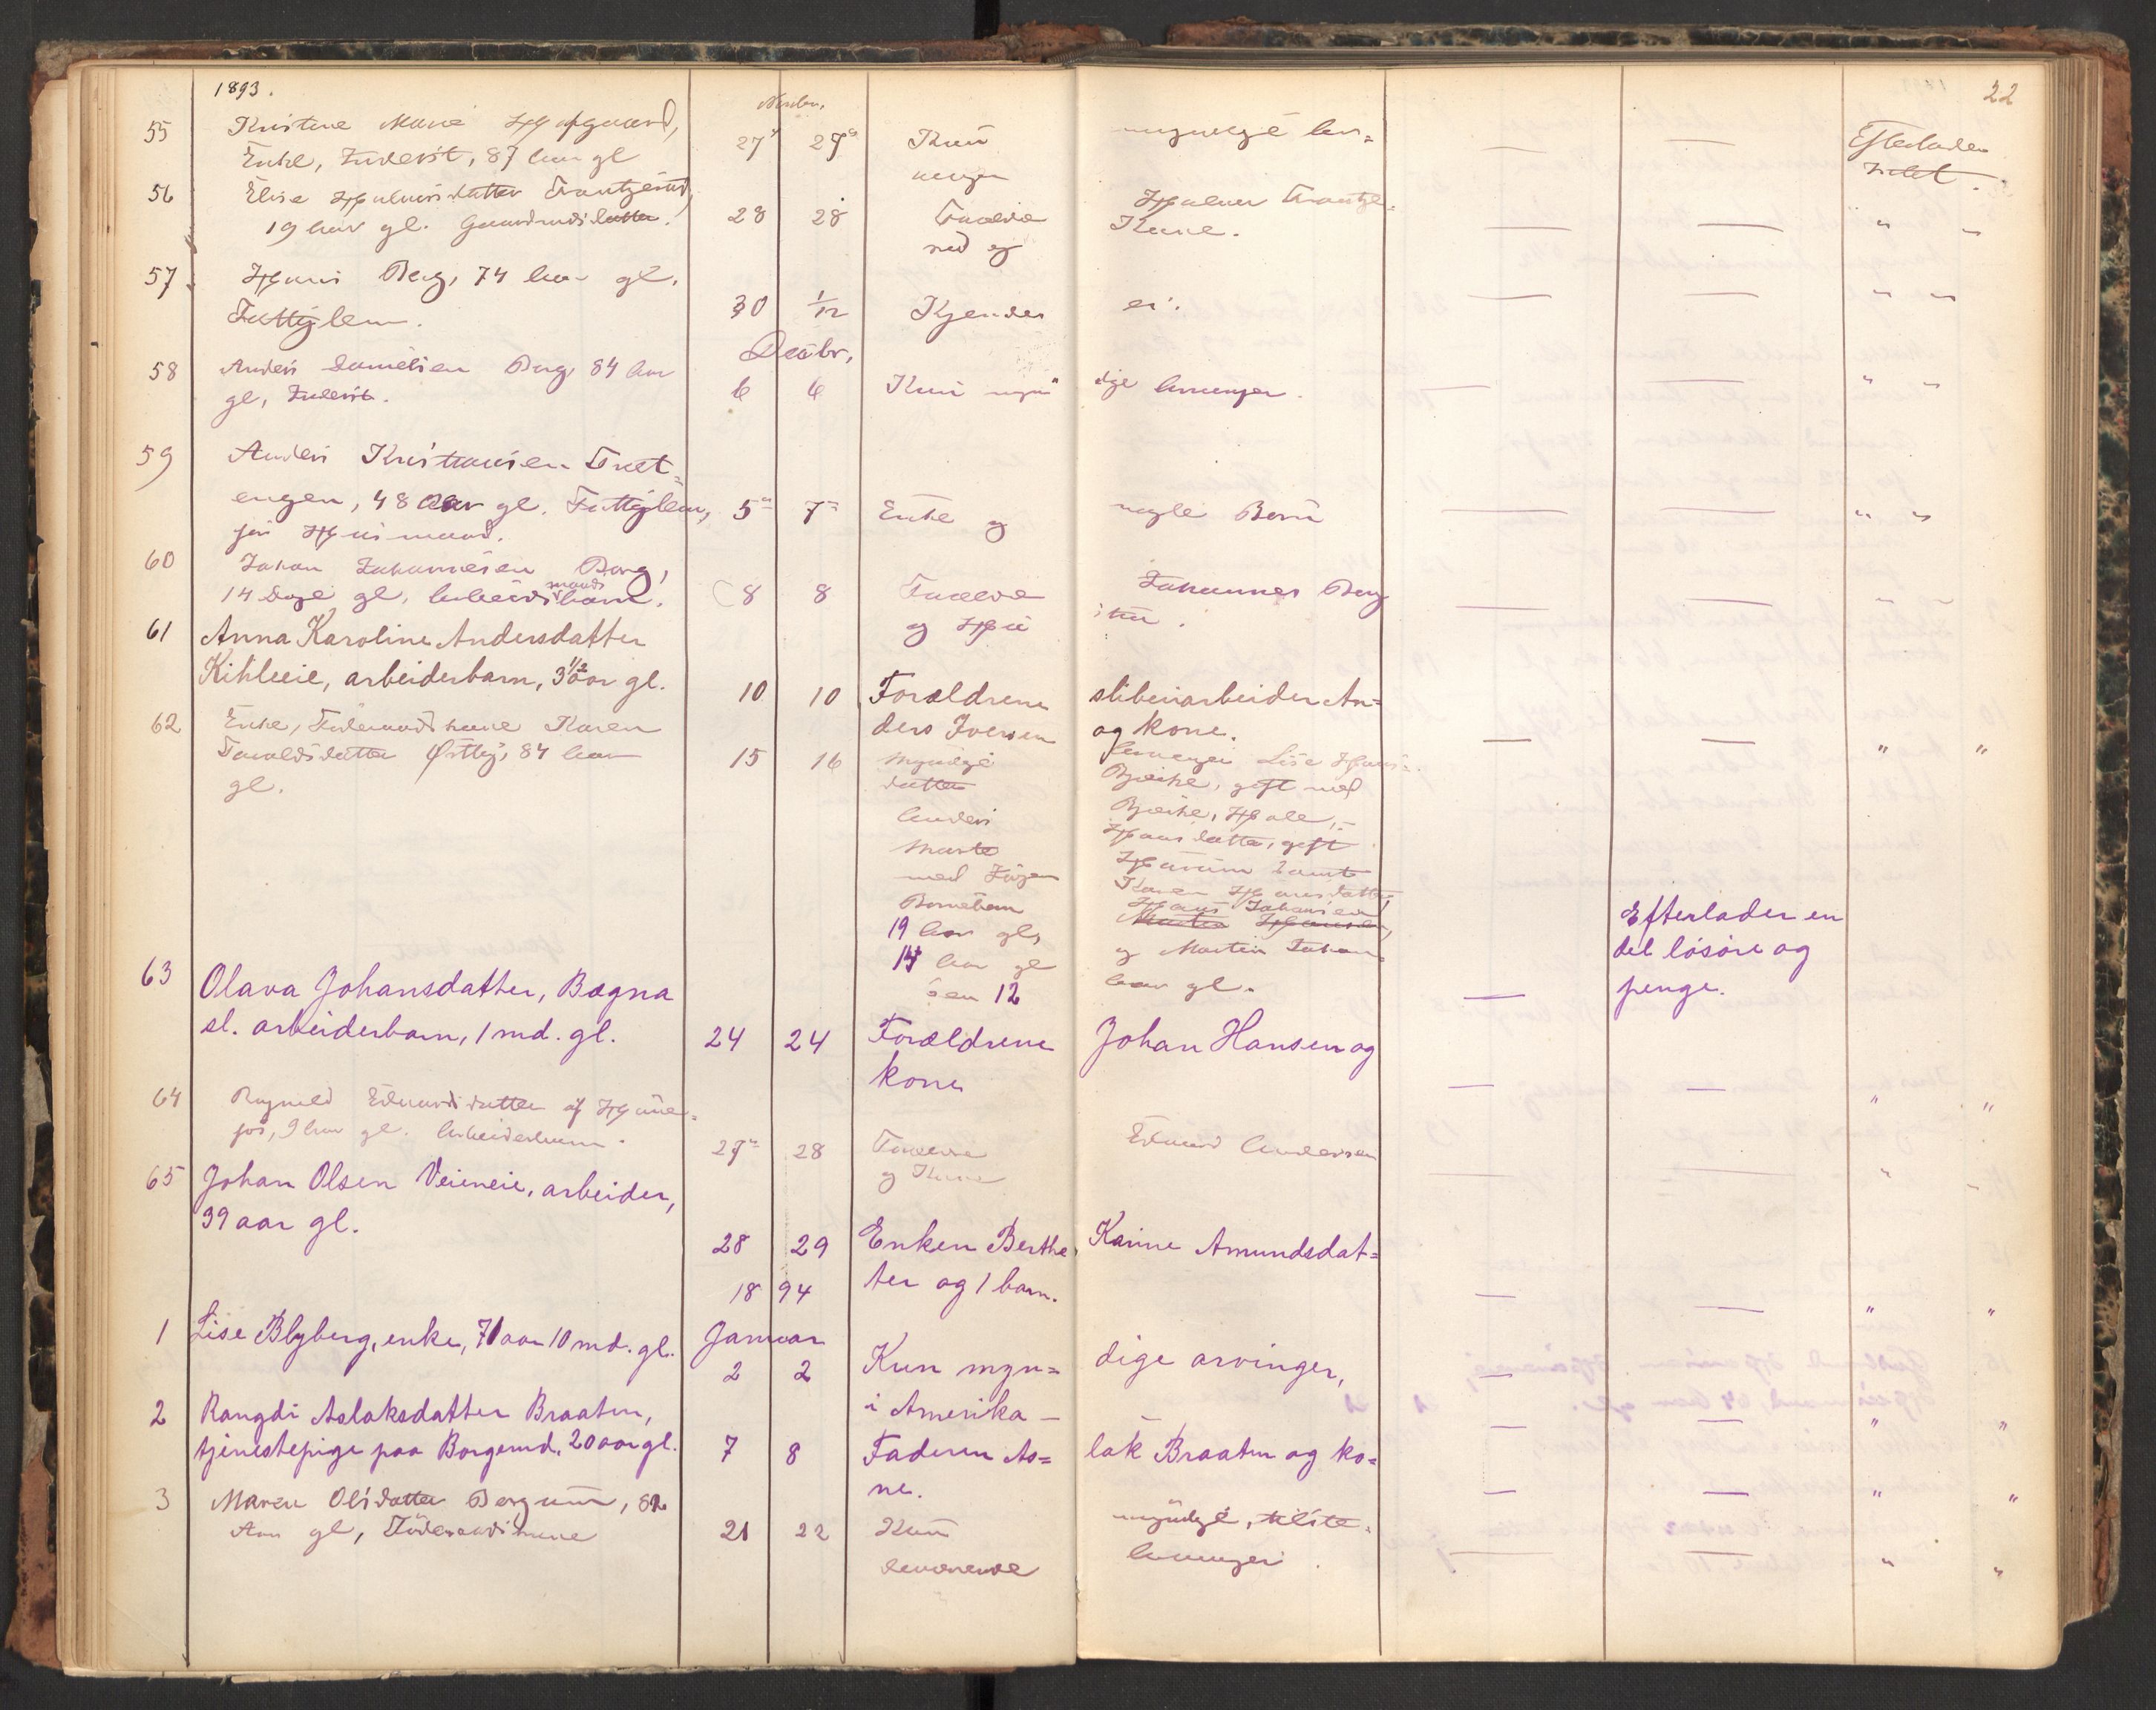 1893.
22
Novbr.
55 Kristine Marie Hofgaard, 27 27 Kun myndige Ar=
Enke, Inderst, 87 Aar gl vinger
Efterlader
intet.
56 Elise Hjalmersdatter Frantzerud,
19 Aar gl. Gaardmdsdatter. 28 28 Forældre Hjalmer Frantze=
rud og Kone. — — " "
57 Hans Berg, 74 Aar gl.
Fattiglem. 30 1/12 Kjendes ei. — — " "
Decbr.
58 Anders Danielsen Berg, 84 Aar
gl, Inderst. 6 6 Kun myn dige Arvinger. — — " "
59 Anders Kristiansen Tret=
engen, 48 Aar gl. Fattiglem, 5 7 Enke og nogle Børn — — " "
før Husmand.
60 Johan Johannesen Berg,
14 Dage gl, Arbeidsmandsbarn. 8 8 Forældre Johannes Berg
og Hustru. — — " "
61 Anna Karoline Andersdatter
Kihleeie, arbeiderbarn, 3 1/2 aar gl. 10 10 Forældrene sliberiarbeider An=
ders Iversen og kone. — — " "
62 Enke, Føderaadskone Karen
Taraldsdatter Østby, 84 Aar 15 16 Myndige Arvinger Lise Hans=
gl. datter Bjerke, gift med
Anders Bjerke, Hole,
Marte Hansdatter, gift
med Jørgen samt
Børnebørn Karen Hansdatter
19 Aar gl, Hans Johansen
14 Aar gl og Martin Johan=
sen 12 Aar gl.
— Efterlader en
del løsøre og
penge.
63 Olava Johansdatter, Bægna
sl. arbeiderbarn, 1 md. gl. 24 24 Forældrene Johan Hansen og
kone — — " "
64 Ragnild Edvardsdatter af Høne=
fos, 9 Aar gl. Arbeiderbarn. 27 28 Forældre Edvard Andersen
og Kone — — " "
65 Johan Olsen Veieneie, arbeider,
39 aar gl. 28 29 Enken Berthe Karine Amundsdat=
ter og 1 barn. — — " "
1894
Januar
1 Lise Blyberg, enke, 71 aar 10 md. gl. 2 2 Kun myn= dige arvinger,
i Amerika — — — " "
2 Rangdi Aslaksdatter Braaten,
tjenestepige paa Borgerud, 20 aar gl. 7 8 Faderen As= lak Braaten og ko=
ne. — — " "
3 Maren Olsdatter Bergum, 82
Aar gl, Føderaadskone 21 22 Kun myndige, tilste=
deværende Arvinger. — — " "